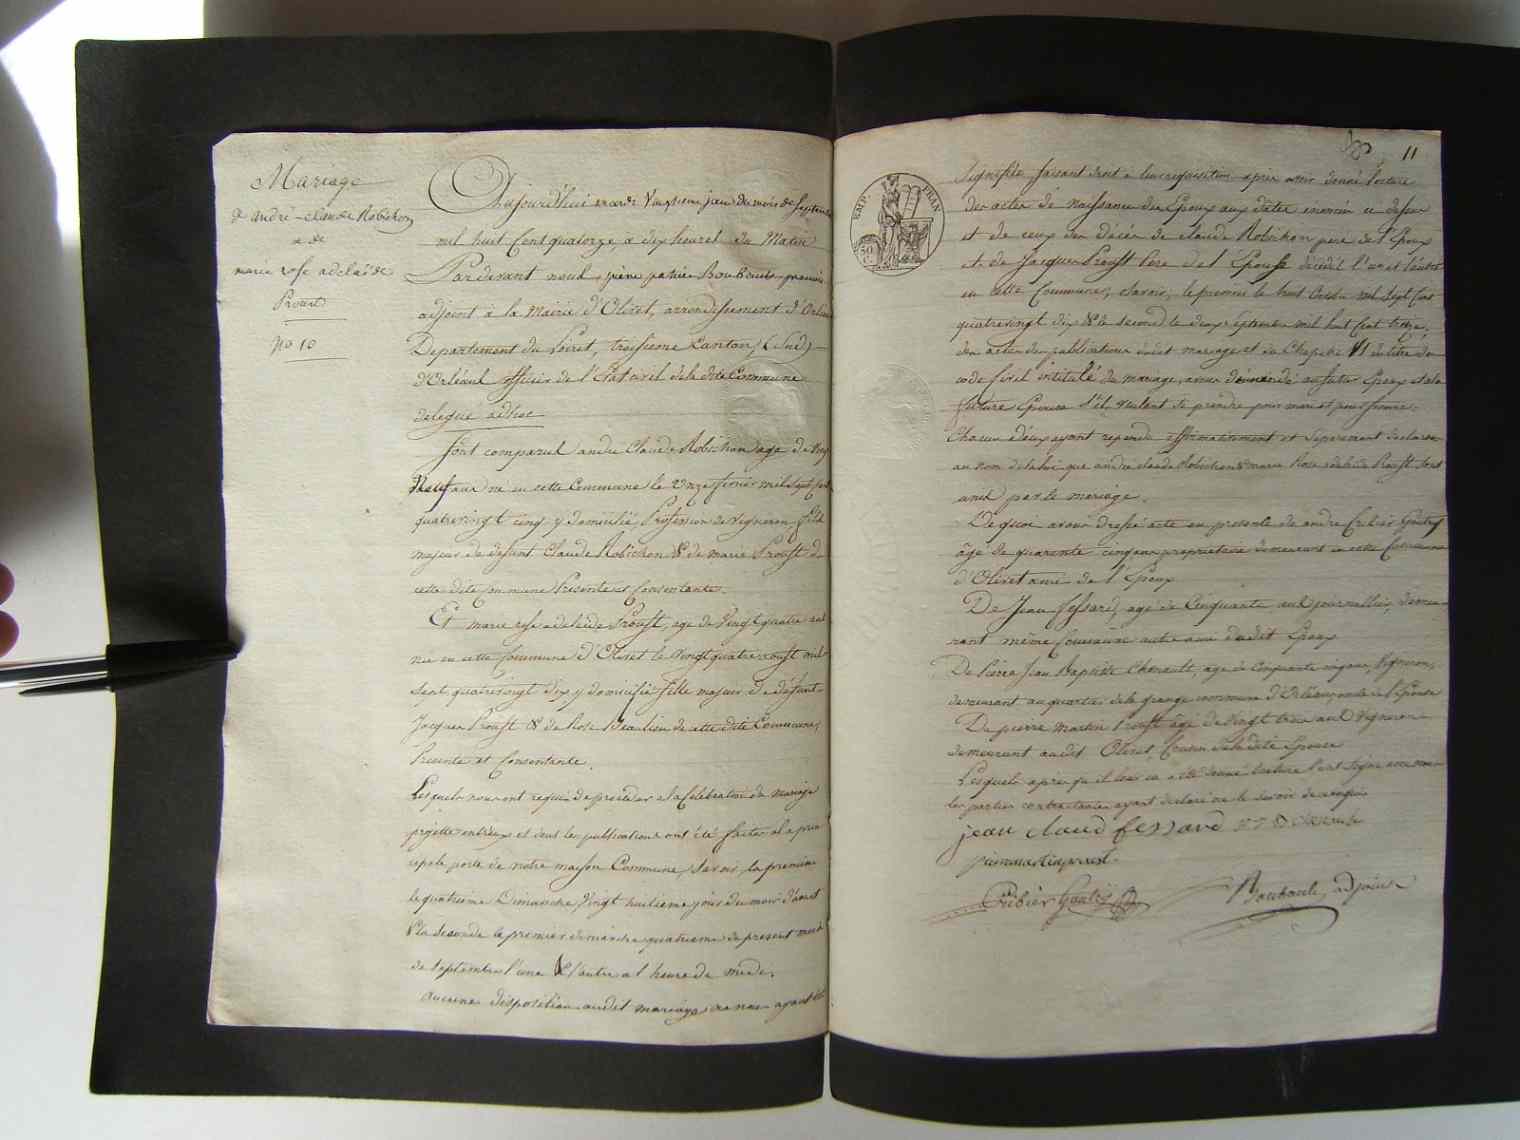 Mariage
de andré-claude Robichon
et de
marie rose adelaide
Proust
No 10
Aujourd'hui mardi Vingtieme jour du mois de Septembre
mil huit Cent quatorze a dix heures du Matin
Pardevant nous pierre patrice Bouboult premier
adjoint à la Mairie d'Olivet, arrondissement d'Orléans
Departement du Loiret, troisieme Canton, (Sud)
d'Orléans officier de l'Etat civil de la dite Commune
delegué ad'hoc
sont comparus andré Claude Robichon age de Vingt
Neuf ans né en cette Commune le Onze fevrier mil Sept Cent
quatrevingt cinq y domicilié Profession de Vigneron, fils
majeur de defunt Claude Robichon & de marie Proust de
cette dite Commune Presente et Consentante
Et marie rose adelaide Proust, age de Vingt quatre ans
née en cette Commune d'Olivet le Vingt quatre aoust mil
sept quatrevingt dix y domiciliée fille majeur de defunt
Jacques Proust & de Rose Beaulieu de cette dite Commune,
Presente et Consentante.
Lesquels nous ont requis de proceder a la Célébration du mariage
projetté entr'eux et dont les publications ont été faites a la prin
cipale porte de notre maison Commune, Savoir, la premiere
le quatrieme Dimanche, Vingt huitieme jour du mois d'aoust
& la Seconde le premier dimanche quatrieme du present mois
de Septembre l'une & l'autre a l heure de midi.
Aucune Opposition audit mariage ne nous ayant été
11
EMP. FRAN
50
C.
signifiée faisant droit a leur requisition apres avoir donné lecture
des actes de naissance des Epoux aux dates enoncés ci dessus
et de ceux des Décès de Claude Robichon pere de l'Epoux
et de Jacques Proust Pere de l Epouse décédés l'un et l'autre
en cette Commune, Savoir, le premier le huit mil Sept Cent
quatrevingt dix & le second le deux Septembre mil huit Cent treize,
des actes de publications dudit mariage et du Chapitre VI du titre du
code Civil intitulé du mariage, avons demandé au futur Epoux et a la
future Epouse S'ils veulent se prendre pour mari et pour femme,
Chacun d'eux ayant repondu affirmativement et séparement declarons
au nom de la loi que andré claude Robichon & marie Rose adelaide Proust sont
unis par le mariage.
De quoi avons dressé acte en presence de andré Cribier Gaulry
âgé de quarante cinq ans proprietaire demeurant en cette Commune
d'Olivet ami de l'Epoux
De Jean fessard, agé de Cinquante ans journallier, demeu-
rant même Commune autre ami dudit Epoux
De Pierre Jean Baptiste Cherault, age de Cinquante cinq ans, Vigneron,
demeurant au quartier de la grange commune d'Orléans, oncle de l'Epouse
De pierre martin Proust agé de Vingt trois ans Vigneron
demeurant audit Olivet, Cousin de la dite Epouse
Lesquels apres qu il leur en a été donné lecture l'ont Signé avec nous
les parties contractantes ayant declaré ne le savoir de ce requis
jean claud fessard
pierre martin proust
Cribier Gaulry
Bouboult, adjoint